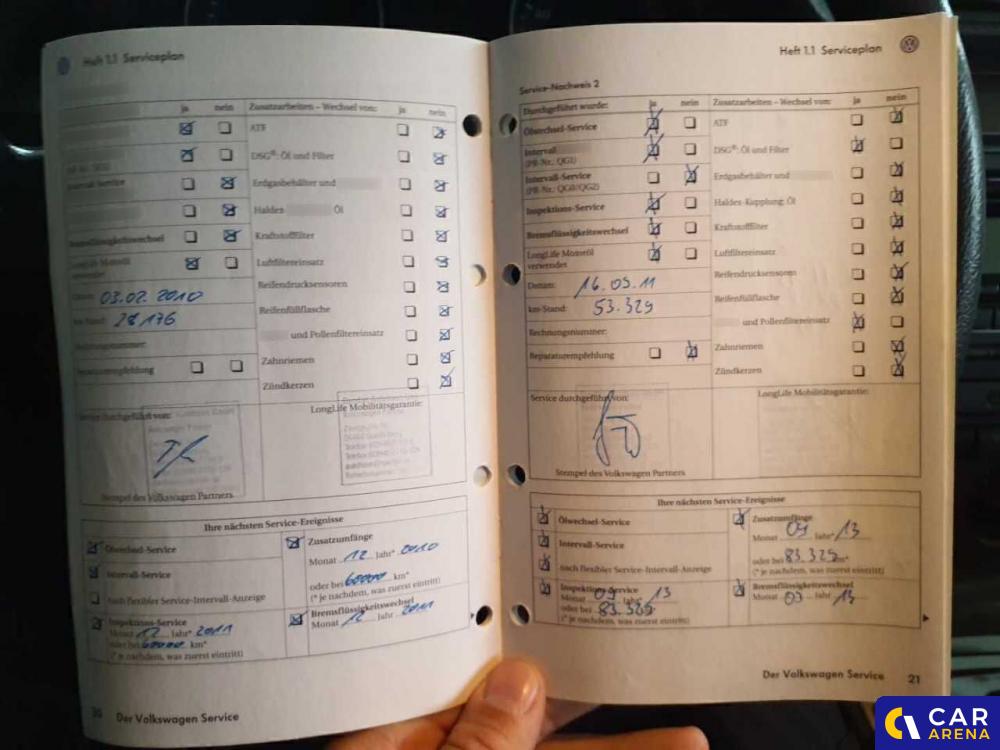 Heft 1.1 Serviceplan
ja nein Zusatzarbeiten – Wechsel von: ja nein
ATF
DSG®: Öl und Filter
Erdgasbehälter und
Intervall-Service
Haldex Öl
Bremsflüssigkeitswechsel
Kraftstofffilter
LongLife Motoröl
verwendet
Luftfiltereinsatz
Datum: 03.02.2010
Reifendrucksensoren
km-Stand: 28 176
Reifenfüllflasche
und Pollenfiltereinsatz
Reparaturempfehlung
Zahnriemen
Zündkerzen
Service durchgeführt von:
LongLife Mobilitätsgarantie:
Stempel des Volkswagen Partners
Ihre nächsten Service-Ereignisse
Ölwechsel-Service
Zusatzumfänge
Monat 12 Jahr* 2010
Intervall-Service
oder bei 60000 km*
(* je nachdem, was zuerst eintritt)
nach flexibler Service-Intervall-Anzeige
Inspektions-Service
Monat 12 Jahr* 2011
oder bei 60000 km*
(* je nachdem, was zuerst eintritt)
Bremsflüssigkeitswechsel
Monat 12 Jahr 2011
20 Der Volkswagen Service
Heft 1.1 Serviceplan
Service-Nachweis 2
Durchgeführt wurde: ja nein Zusatzarbeiten – Wechsel von: ja nein
Ölwechsel-Service
ATF
Intervall
(PR-Nr.: QG1)
DSG®: Öl und Filter
Intervall-Service
(PR-Nr.: QG0/QG2)
Erdgasbehälter und
Inspektions-Service
Haldex-Kupplung: Öl
Bremsflüssigkeitswechsel
Kraftstofffilter
LongLife Motoröl
verwendet
Luftfiltereinsatz
Datum: 16.05.11
Reifendrucksensoren
km-Stand: 53.329
Reifenfüllflasche
Rechnungsnummer:
und Pollenfiltereinsatz
Reparaturempfehlung
Zahnriemen
Zündkerzen
Service durchgeführt von:
LongLife Mobilitätsgarantie:
Stempel des Volkswagen Partners
Ihre nächsten Service-Ereignisse
Ölwechsel-Service
Zusatzumfänge
Monat Jahr* 13
Intervall-Service
oder bei 83.329 km*
(* je nachdem, was zuerst eintritt)
nach flexibler Service-Intervall-Anzeige
Inspektions-Service
Monat 13
oder bei 83.329
(* je nachdem, was zuerst eintritt)
Bremsflüssigkeitswechsel
Monat Jahr 13
Der Volkswagen Service 21
CAR
ARENA